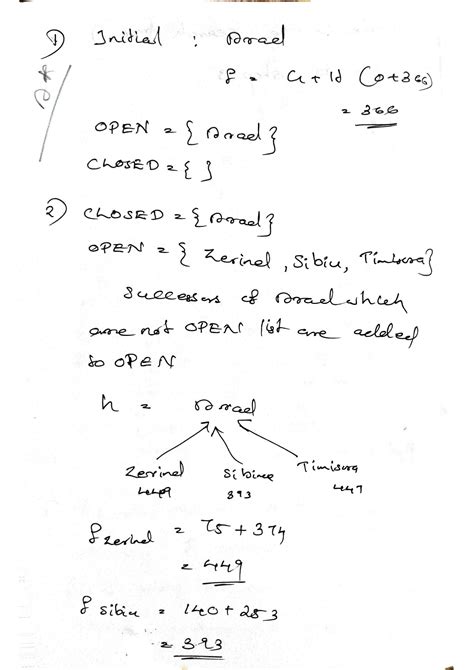 1) Initial : Arad
A*
f = G + H (0+366)
= 366
OPEN = { Arad }
CLOSED = { }
2) CLOSED = { Arad }
OPEN = { Zerind, Sibiu, Timisora }
Successors of Arad which
are not OPEN list are added
to OPEN
h = Arad
Zerrind Sibiu Timisora
449 393 447
f zerind = 75 + 374
= 449
f sibiu = 140 + 253
= 393